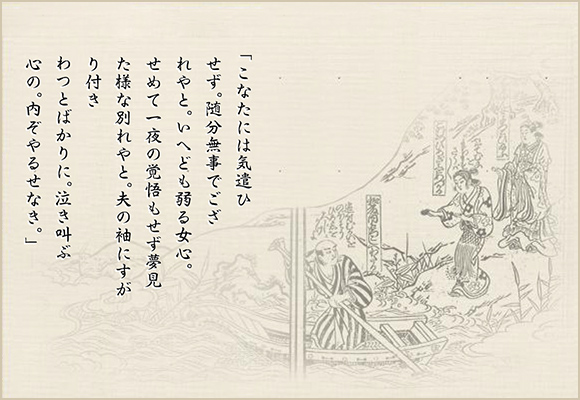 「こなたには気遣ひ
せず。随分無事でござ
れやと。いへども弱る女心。
せめて一夜の覚悟もせず夢見
た様な別れやと。夫の袖にすが
り付き
わつとばかりに。泣き叫ぶ
心の。内ぞやるせなき。」